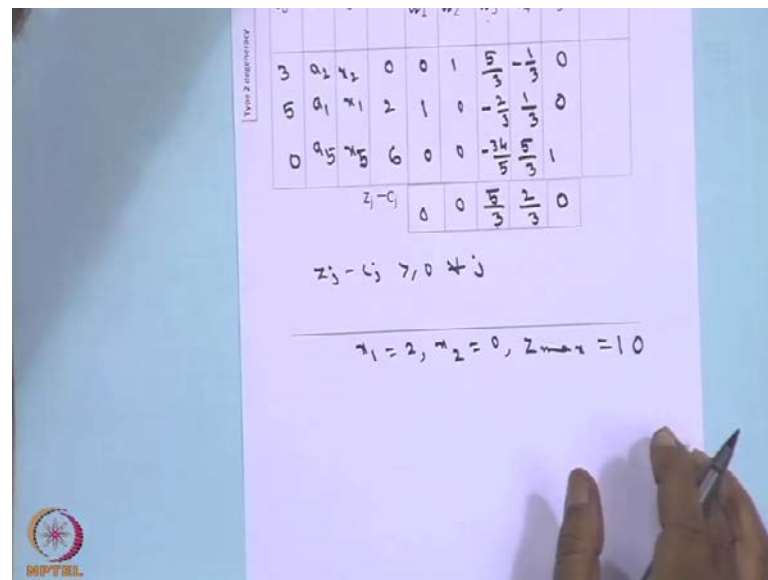 Type 2 degeneracy
3 a₂ x₂ 0 0 1 5/3 -1/3 0
5 a₁ x₁ 2 1 0 -2/3 1/3 0
0 a5 x5 6 0 0 -34/5 5/3 1
zj-cj 0 0 5/3 2/3 0
zj - cj ≥ 0 ∀ j
x₁ = 2, x₂ = 0, Zmax = 10
NPTEL